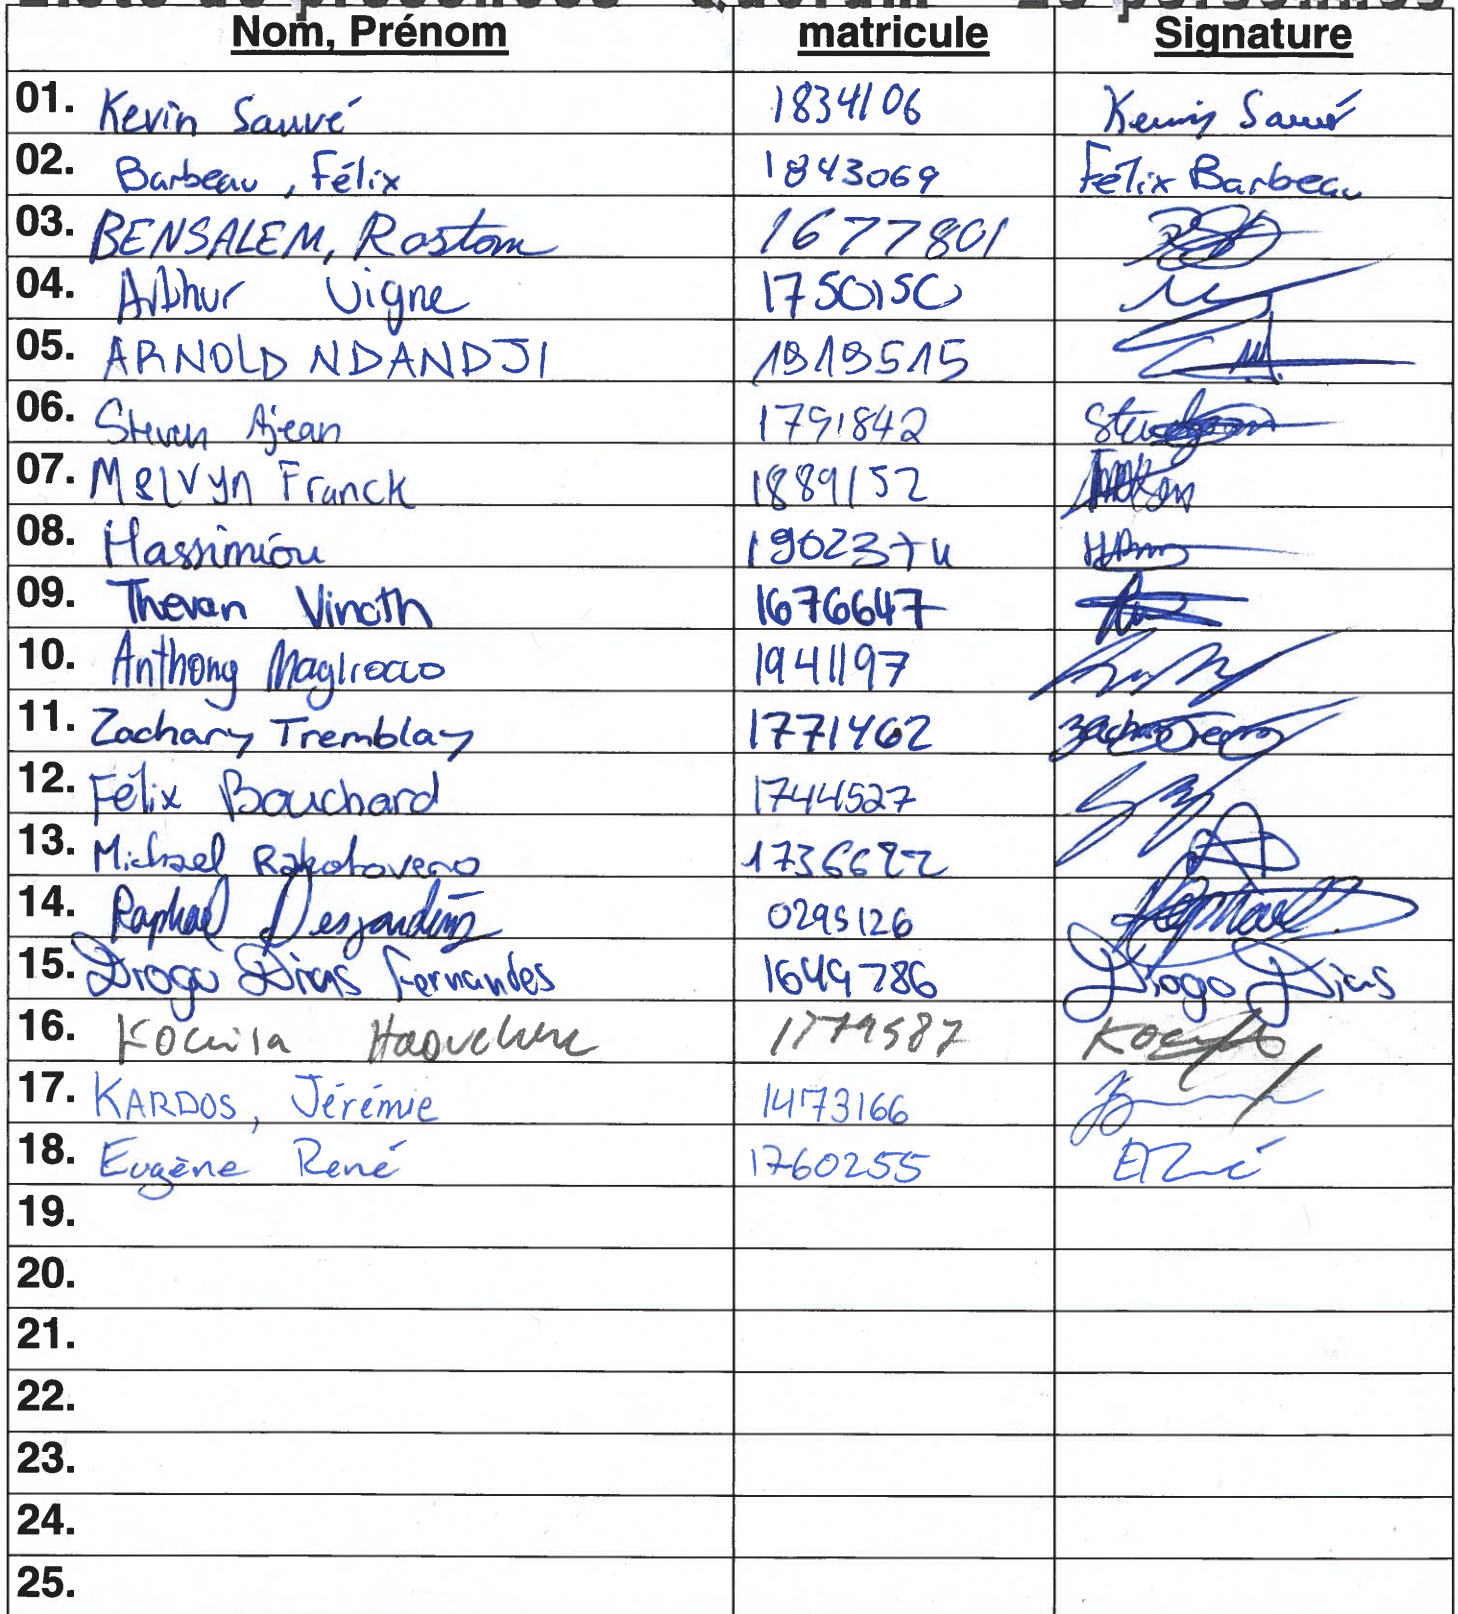 Liste de présences - Quorum = 25 personnes
Nom, Prénom matricule Signature
01. Kevin Sauvé 1834106 Kevin Sauvé
02. Barbeau, Félix 1843069 Félix Barbeau
03. BENSALEM, Rostom 1677801
04. Arthur Vigne 1750150
05. ARNOLD NDANDJI 1919515
06. Steven Ajean 1791842
07. Melvyn Franck 1889152
08. Hassimiou
09. Thevan Vinoth 1676647
10. Anthony Magliocco 1941197
11. Zachary Tremblay 1771462
12. Félix Bouchard 1744527
13. Michael
14. Raphael Desjardins 0295126 Raphael
15. Diogo Dias Fernandes 1649786 Diogo Dias
16. 1779587
17. KARDOS, Jérémie 1473166
18. Eugène René 1760255 E René
19.
20.
21.
22.
23.
24.
25.